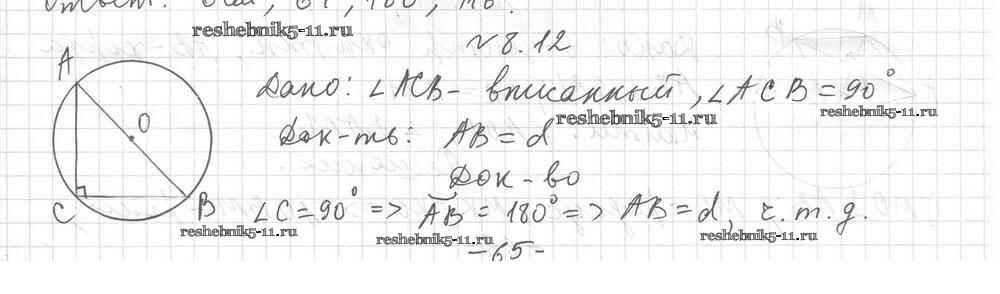 Ответ:
reshebnik5-11.ru
№ 8.12
A
O
C
B
Дано: ∠ACB - вписанный, ∠ACB = 90°
reshebnik5-11.ru reshebnik5-11.ru
Док-ть: AB = d
Док-во
∠C = 90° => ◡AB = 180° => AB = d, ч.т.д.
reshebnik5-11.ru reshebnik5-11.ru reshebnik5-11.ru
-65-